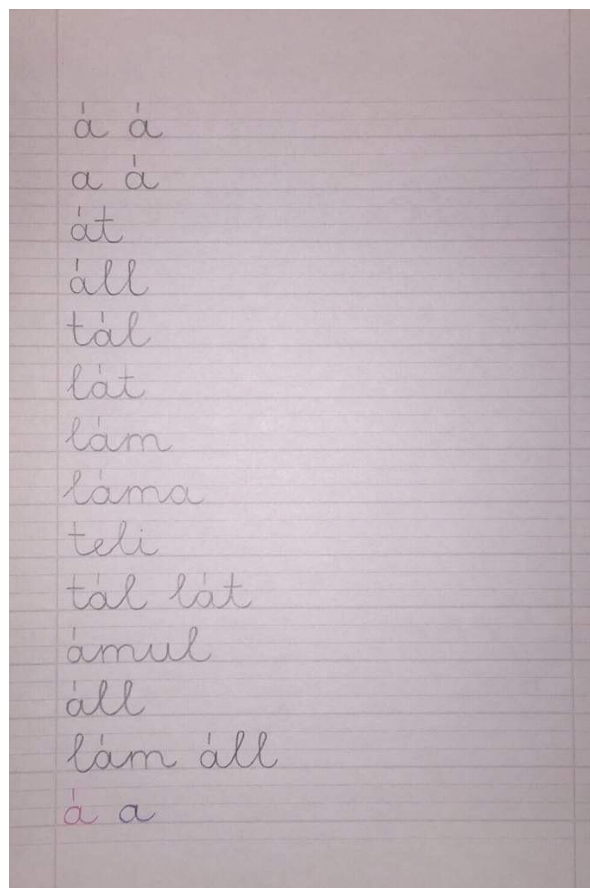 á á
a á
át
áll
tál
lát
lám
láma
teli
tál lát
ámul
áll
lám áll
á a